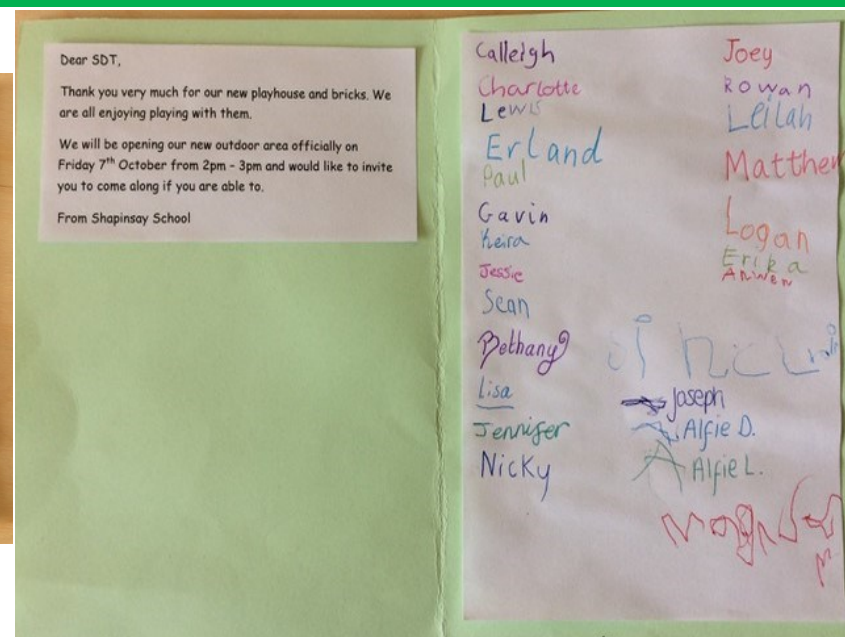 Dear SDT,
Thank you very much for our new playhouse and bricks. We
are all enjoying playing with them.
We will be opening our new outdoor area officially on
Friday 7th October from 2pm - 3pm and would like to invite
you to come along if you are able to.
From Shapinsay School
Calleigh
Charlotte
Lewis
Erland
Paul
Gavin
Keira
Jessie
Sean
Bethany
Lisa
Jennifer
Nicky
Joey
Rowan
Leilah
Matthew
Logan
Erika
Arwen
Joseph
Alfie D.
A Alfie L.